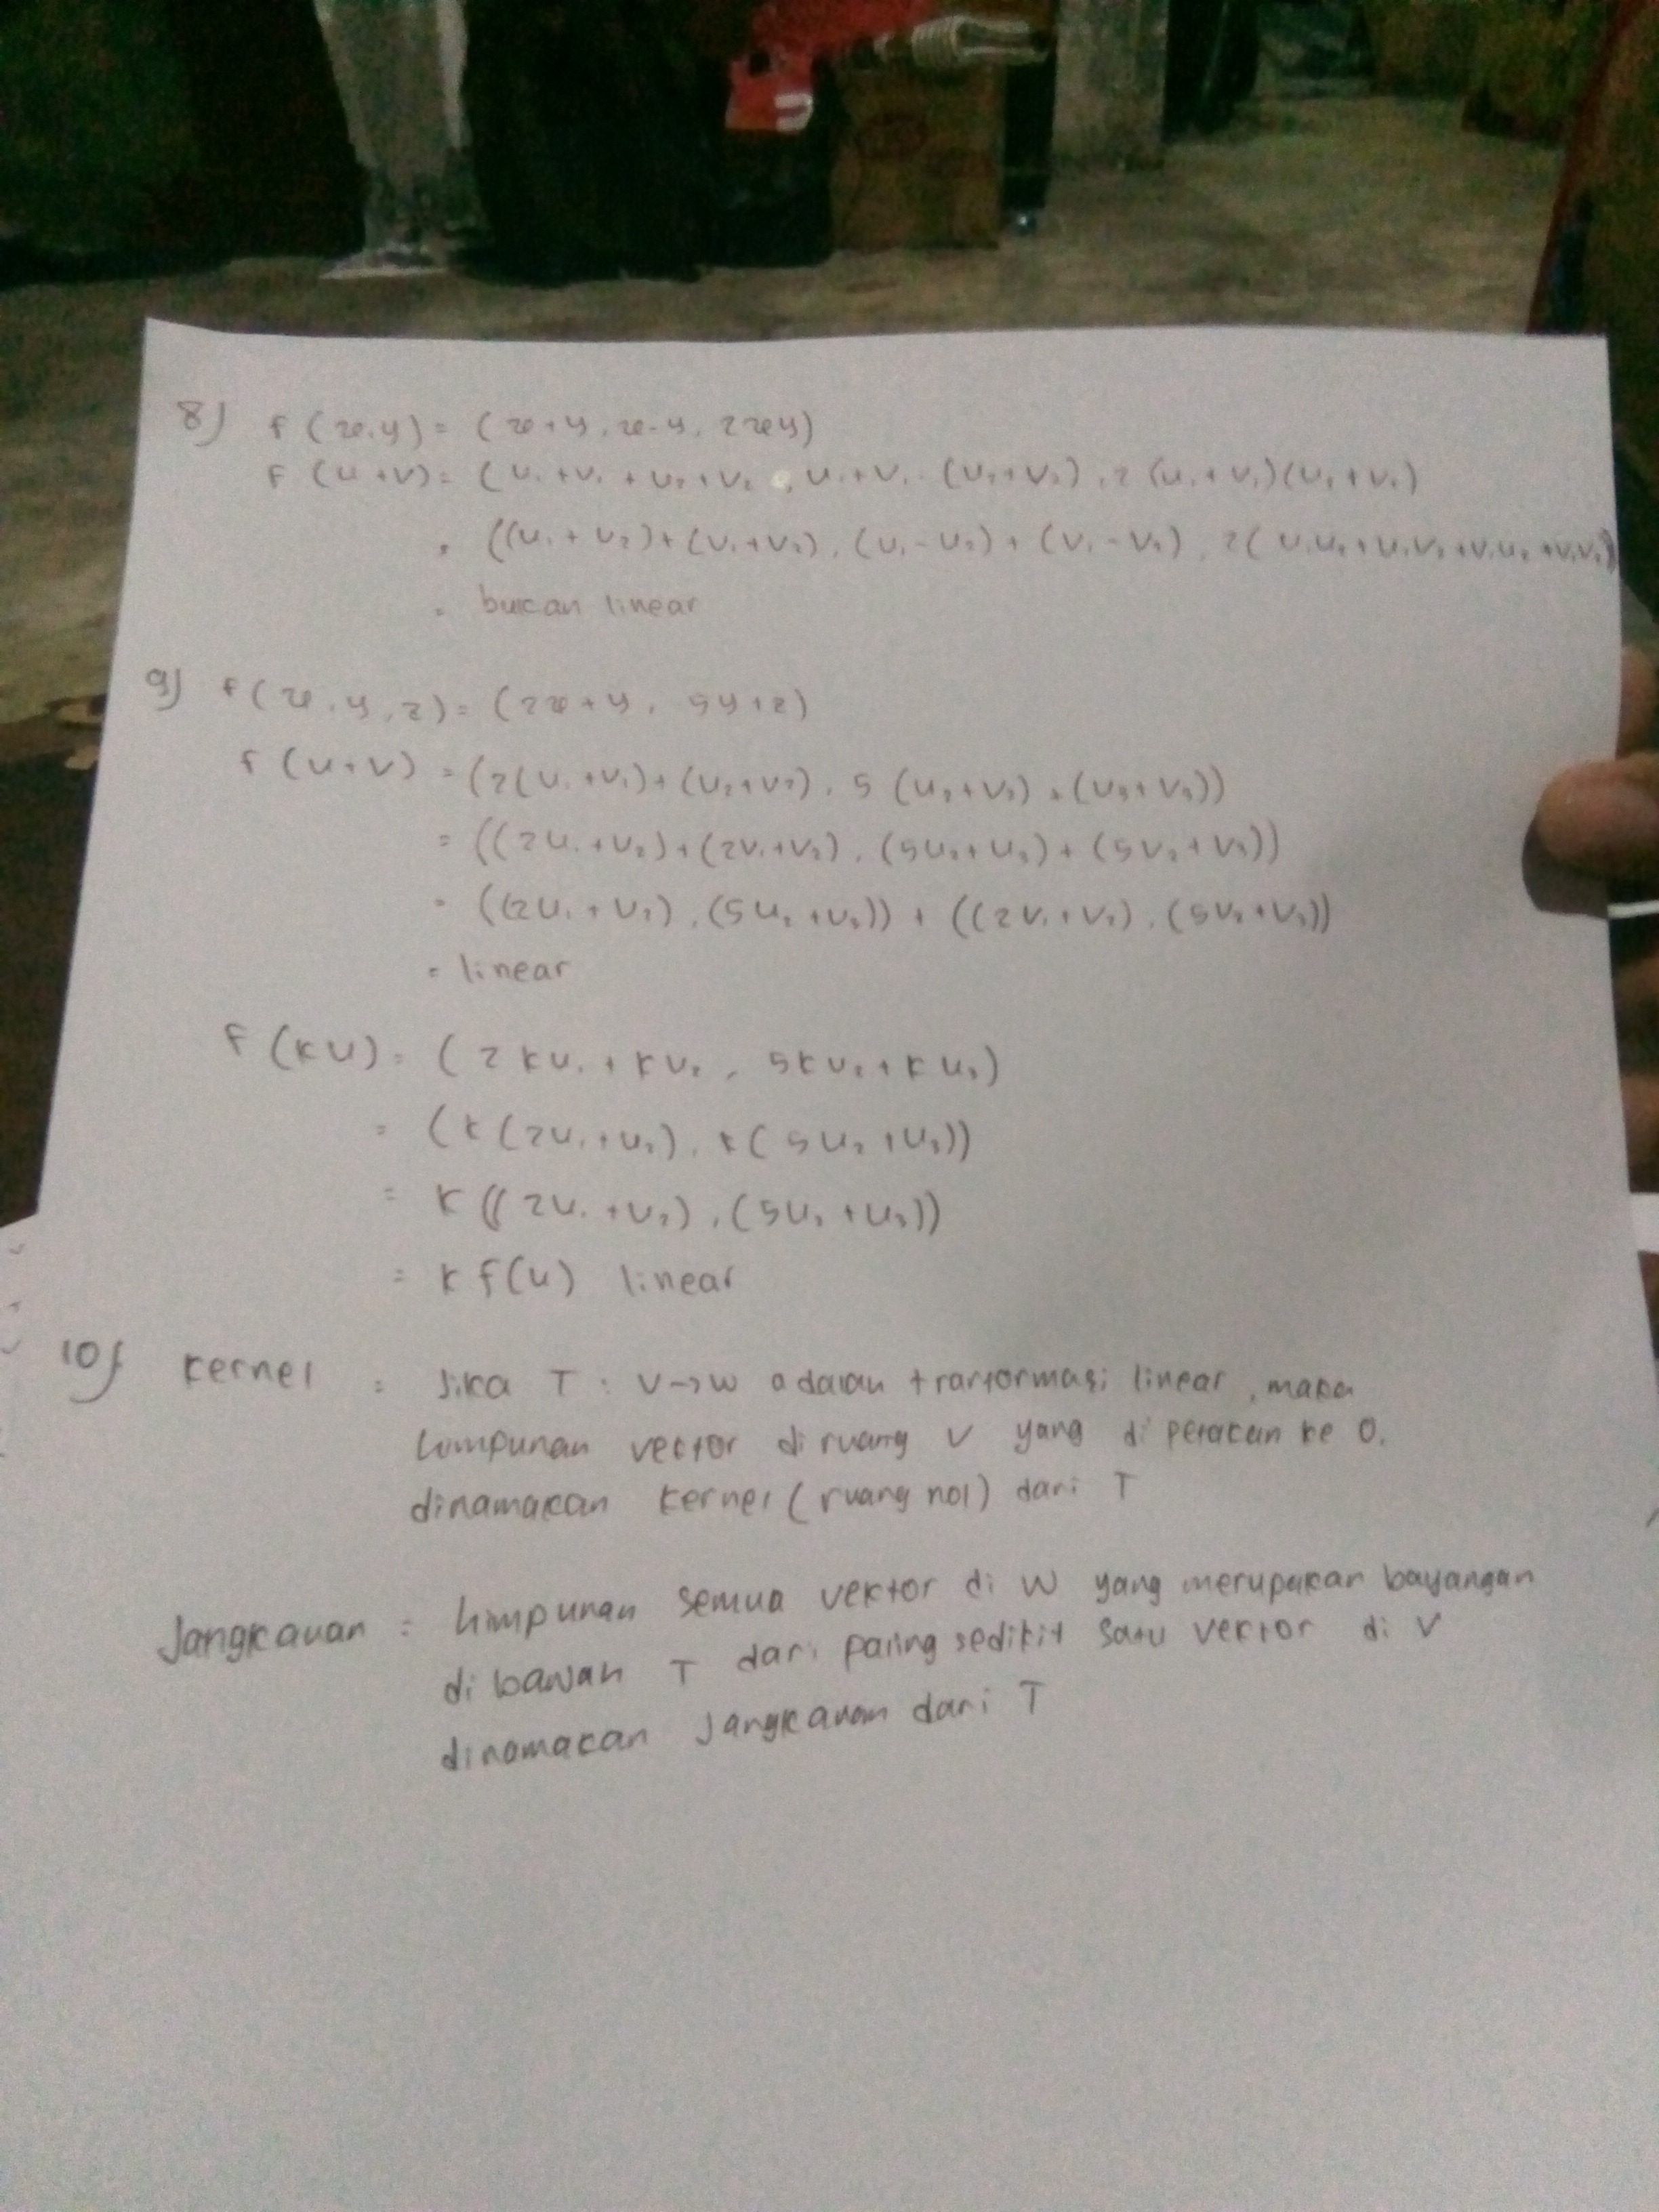 8) f(x,y) = (x+y, x-y, 2xy)
f(u+v) = (u₁+v₁+u₂+v₂, u₁+v₁-(u₂+v₂), 2(u₁+v₁)(u₂+v₂)
= ((u₁+u₂)+(v₁+v₂), (u₁-u₂)+(v₁-v₂), 2(u₁u₂+u₁v₂+v₁u₂+v₁v₂))
= bukan linear
9) f(x,y,z) = (2x+y, 5y+z)
f(u+v) = (2(u₁+v₁)+(u₂+v₂), 5(u₂+v₂)+(u₃+v₃))
= ((2u₁+u₂)+(2v₁+v₂), (5u₂+u₃)+(5v₂+v₃))
= ((2u₁+u₂), (5u₂+u₃)) + ((2v₁+v₂), (5v₂+v₃))
= linear
f(ku) = (2ku₁+ku₂, 5ku₂+ku₃)
= (k(2u₁+u₂), k(5u₂+u₃))
= k((2u₁+u₂), (5u₂+u₃))
= k f(u) linear
10) kernel = Jika T : V→W adalah tranformasi linear, maka
himpunan vector diruang V yang di petakan ke 0.
dinamakan kernel (ruang nol) dari T
Jangkauan = himpunan semua vektor di W yang merupakan bayangan
di bawah T dari paling sedikit satu vektor di V
dinamakan Jangkauan dari T